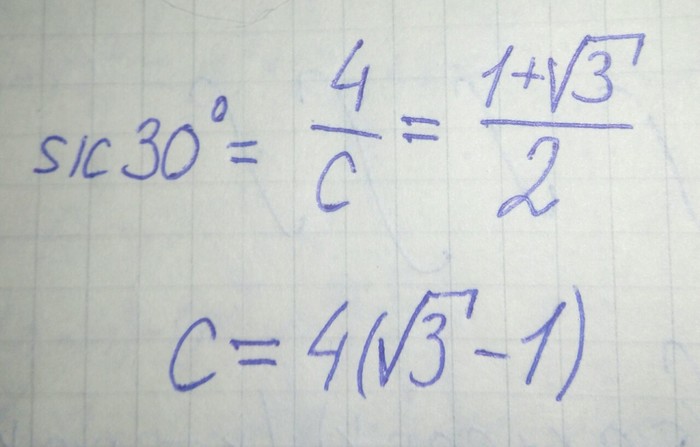 sic 30° = 4/c = (1+√3)/2
C = 4(√3 - 1)